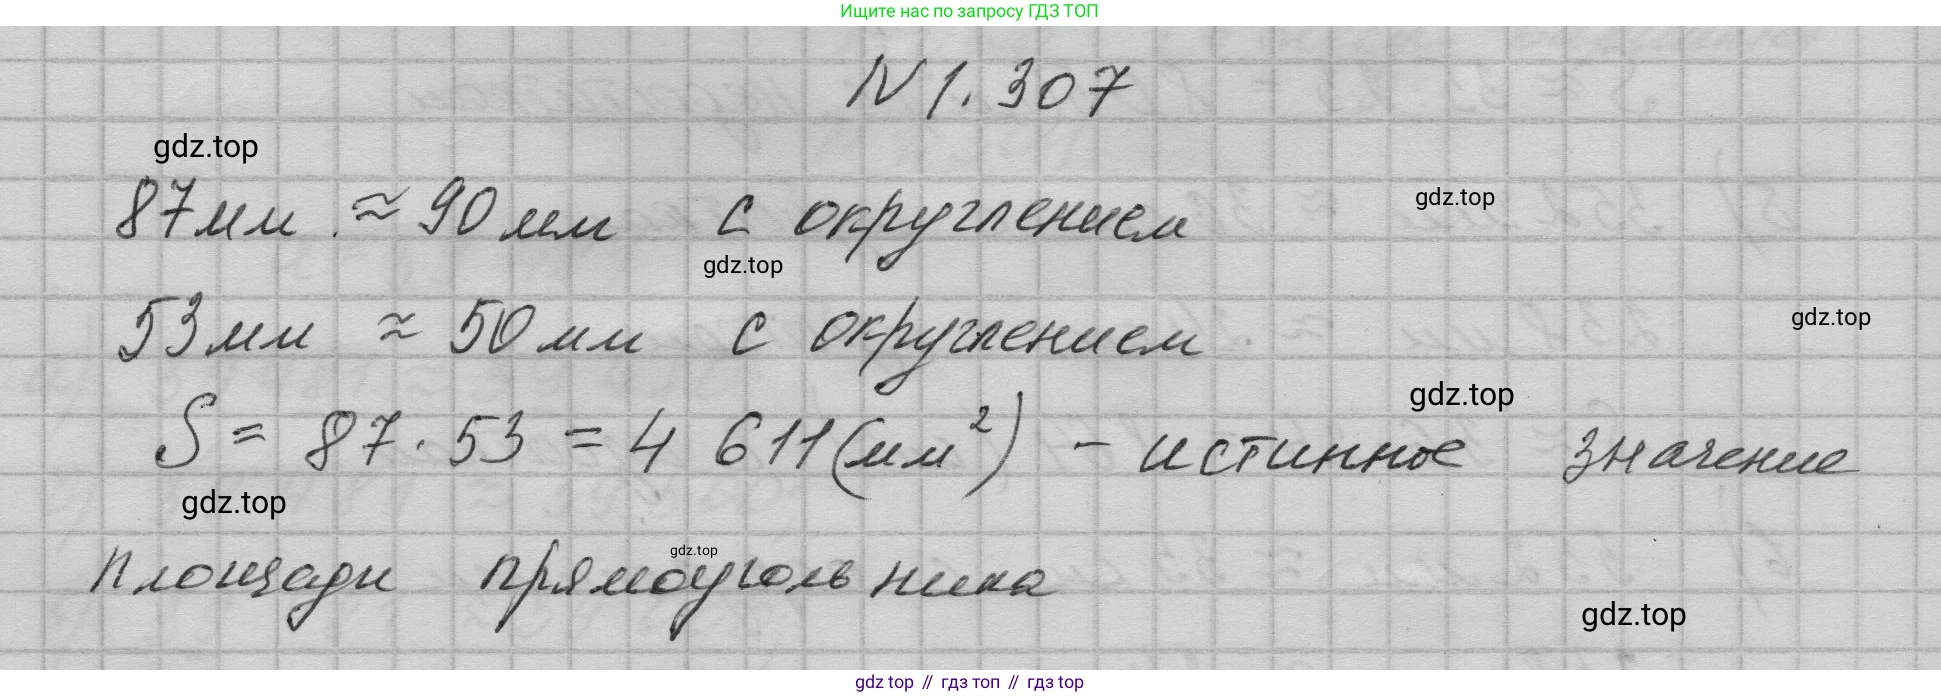 Ищите нас по запросу ГДЗ ТОП
N 1.307
gdz.top
87мм ≈ 90мм с округлением
gdz.top
gdz.top
53мм ≈ 50мм с округлением
gdz.top
gdz.top
S = 87 · 53 = 4 611 (мм²) - истинное значение
gdz.top
gdz.top
площади прямоугольника
gdz.top
gdz top // гдз топ // гдз top